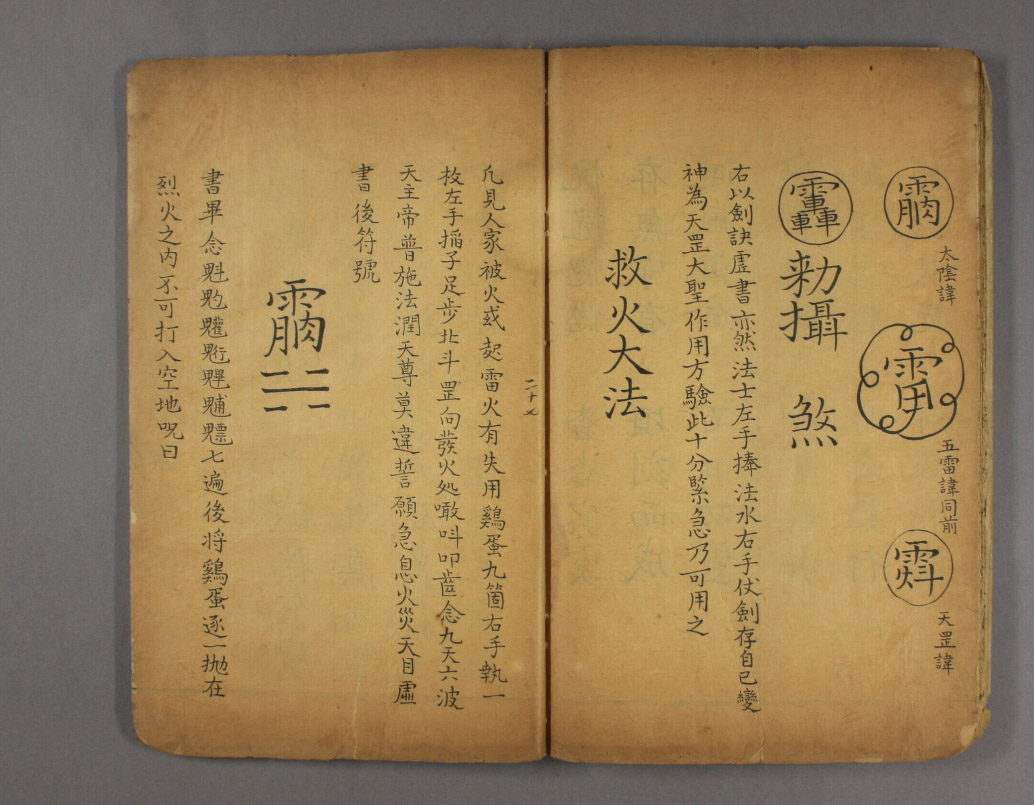 太陰諱
五雷諱同前
天罡諱
勑攝 煞
右以劍訣虛書亦然法士左手捧法水右手仗劍存自己變
神為天罡大聖作用方驗此十分緊急乃可用之
救火大法
二十七
凢見人家被火或起雷火有失用鷄蛋九箇右手執一
枚左手搯子足步北斗罡向發火処噉呌叩齒念九天六波
天主帝普施法潤天尊莫違誓願急息火災天目虛
書後符號
書畢念魁䰢䰡魓䰣七遍後将鷄蛋逐一抛在
烈火之内不可打入空地呪曰